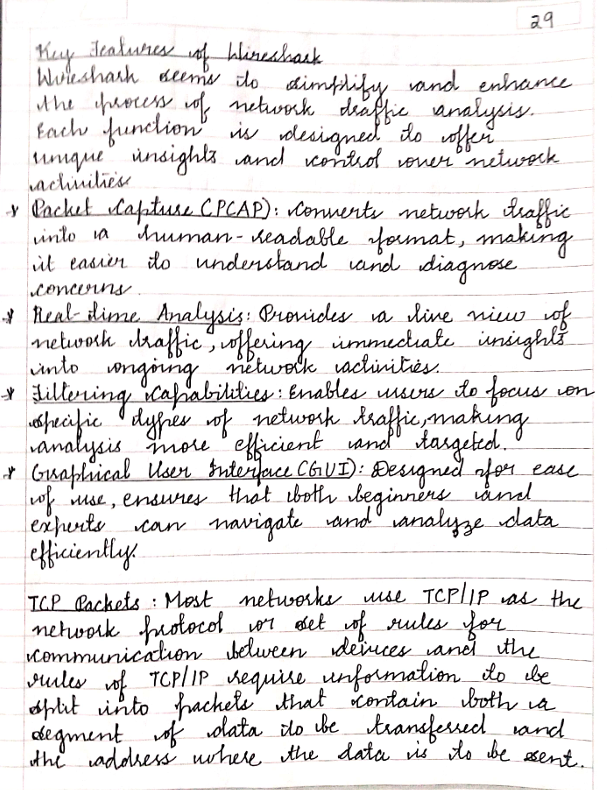 29
Key Features of Wireshark
Wireshark seems to simplify and enhance
the process of network traffic analysis.
Each function is designed to offer
unique insights and control over network
activities
* Packet Capture (PCAP): Converts network traffic
into a human-readable format, making
it easier to understand and diagnose
concerns.
* Real-time Analysis: Provides a live view of
network traffic, offering immediate insights
into ongoing network activities.
* Filtering Capabilities: Enables users to focus on
specific types of network traffic, making
analysis more efficient and targeted.
* Graphical User Interface (GUI): Designed for ease
of use, ensures that both beginners and
experts can navigate and analyze data
efficiently.
TCP Packets: Most networks use TCP/IP as the
network protocol or set of rules for
communication between devices and the
rules of TCP/IP require information to be
split into packets that contain both a
segment of data to be transferred and
the address where the data is to be sent.